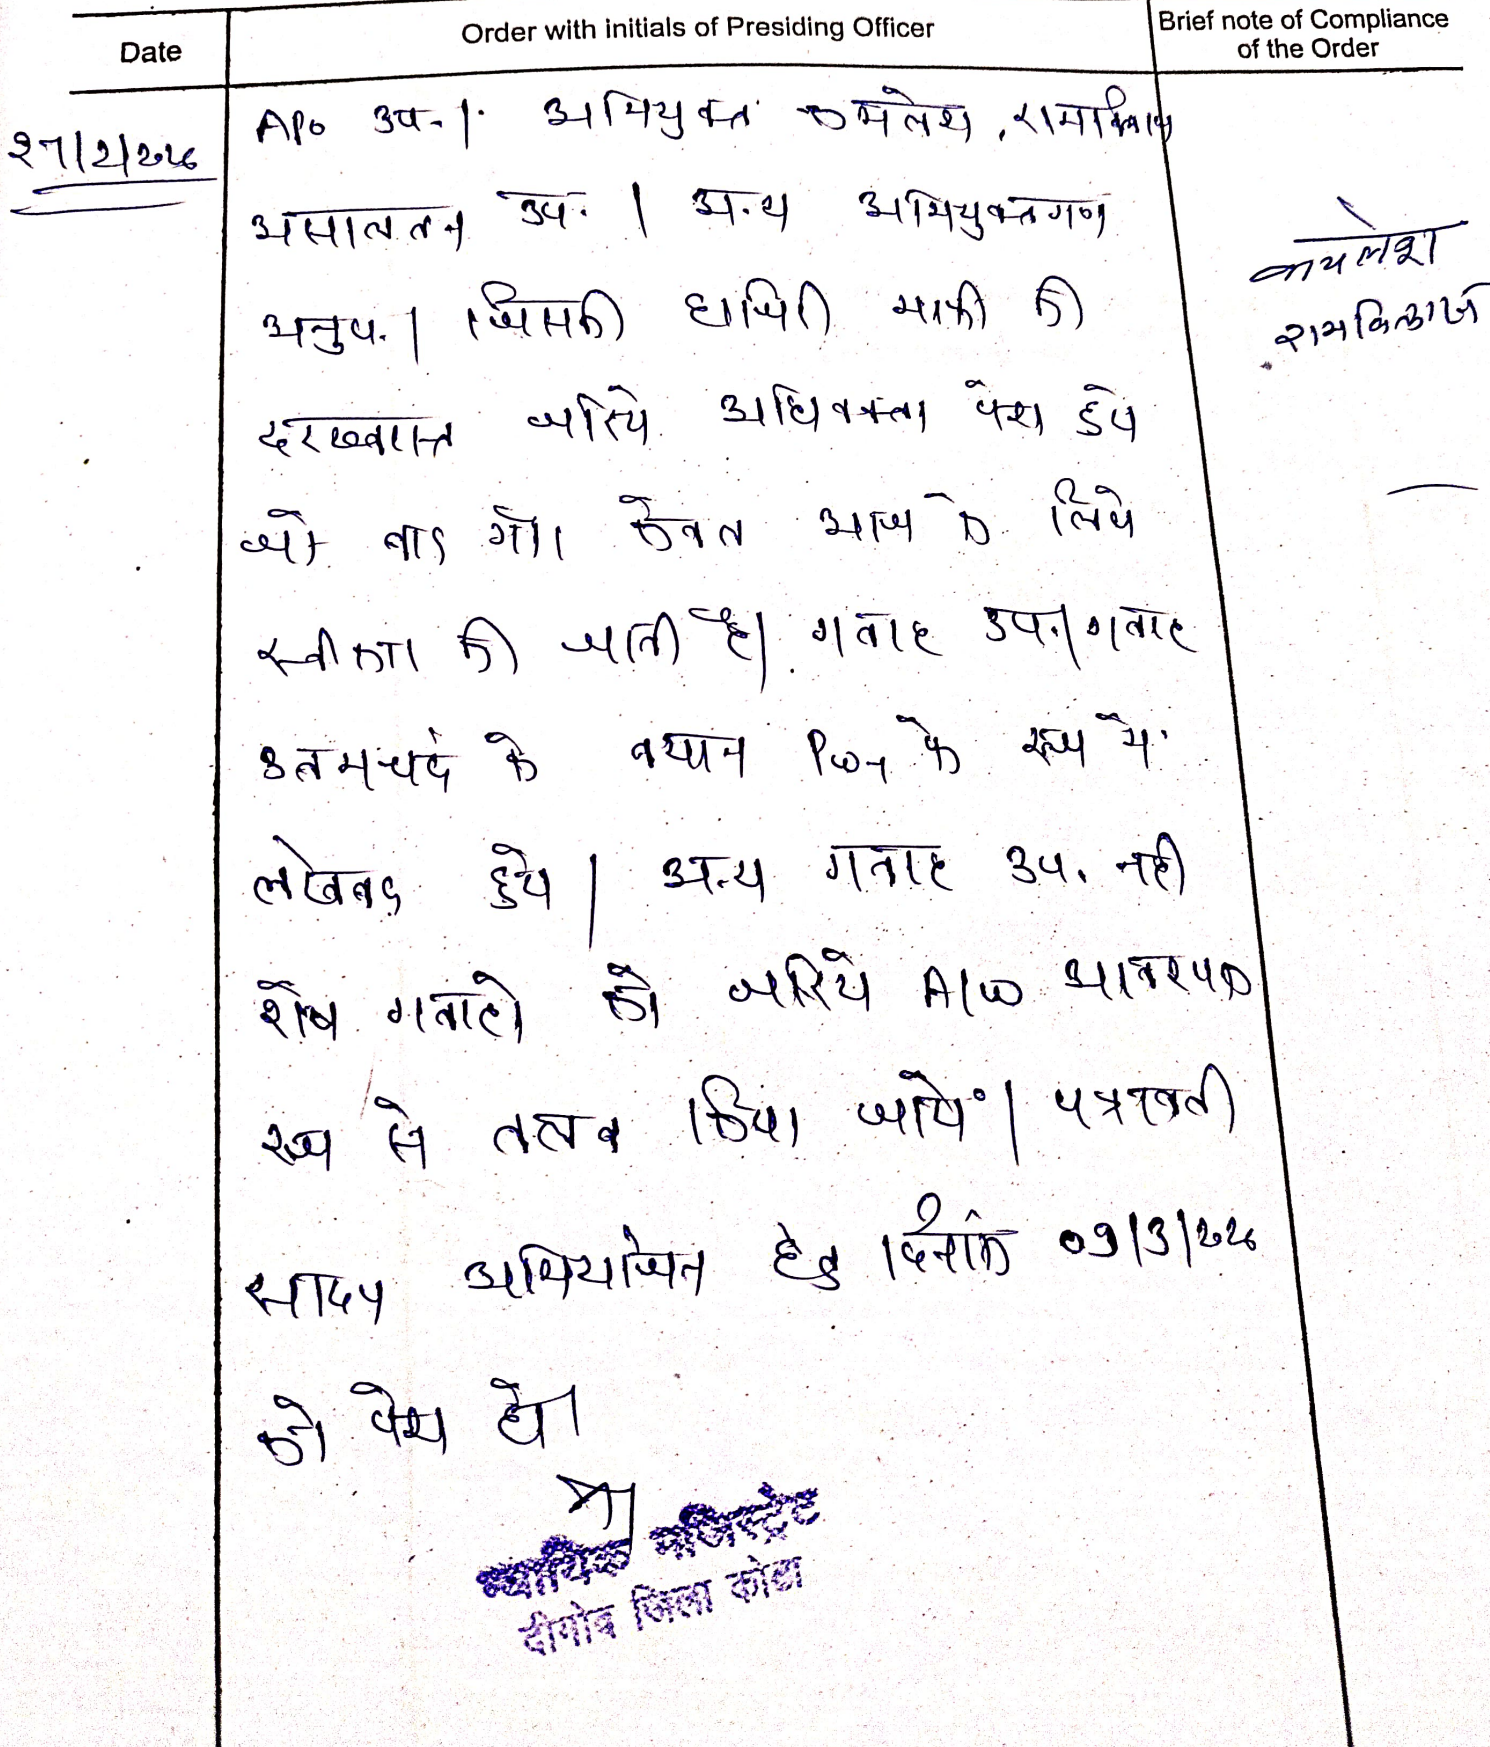 Date
Order with initials of Presiding Officer
Brief note of Compliance
of the Order
27/2/2026
APO उप.। अभियुक्त कमलेश, रामविलास
असालतन उप. । अन्य अभियुक्तगण
अनुप.। जिसकी हाजिरी माफी की
दरख्वास्त जरिये अधिवक्ता पेश हुये
जो बाद गौर केवल आज के लिये
स्वीकार की जाती है। गवाह उप.। गवाह
उतमचदं के बयान PW1 के रूप में
लेखबद हुये । अन्य गवाह उप. नही
शेष गवाहो को जरिये A/W आवश्यक
रूप से तलब किया जाये। पत्रावली
साक्ष्य अभियोजन हेतु दिनांक 09/3/2026
को पेश हो।
न्यायिक मजिस्ट्रेट
दीगोद जिला कोटा
कमलेश
रामविलास